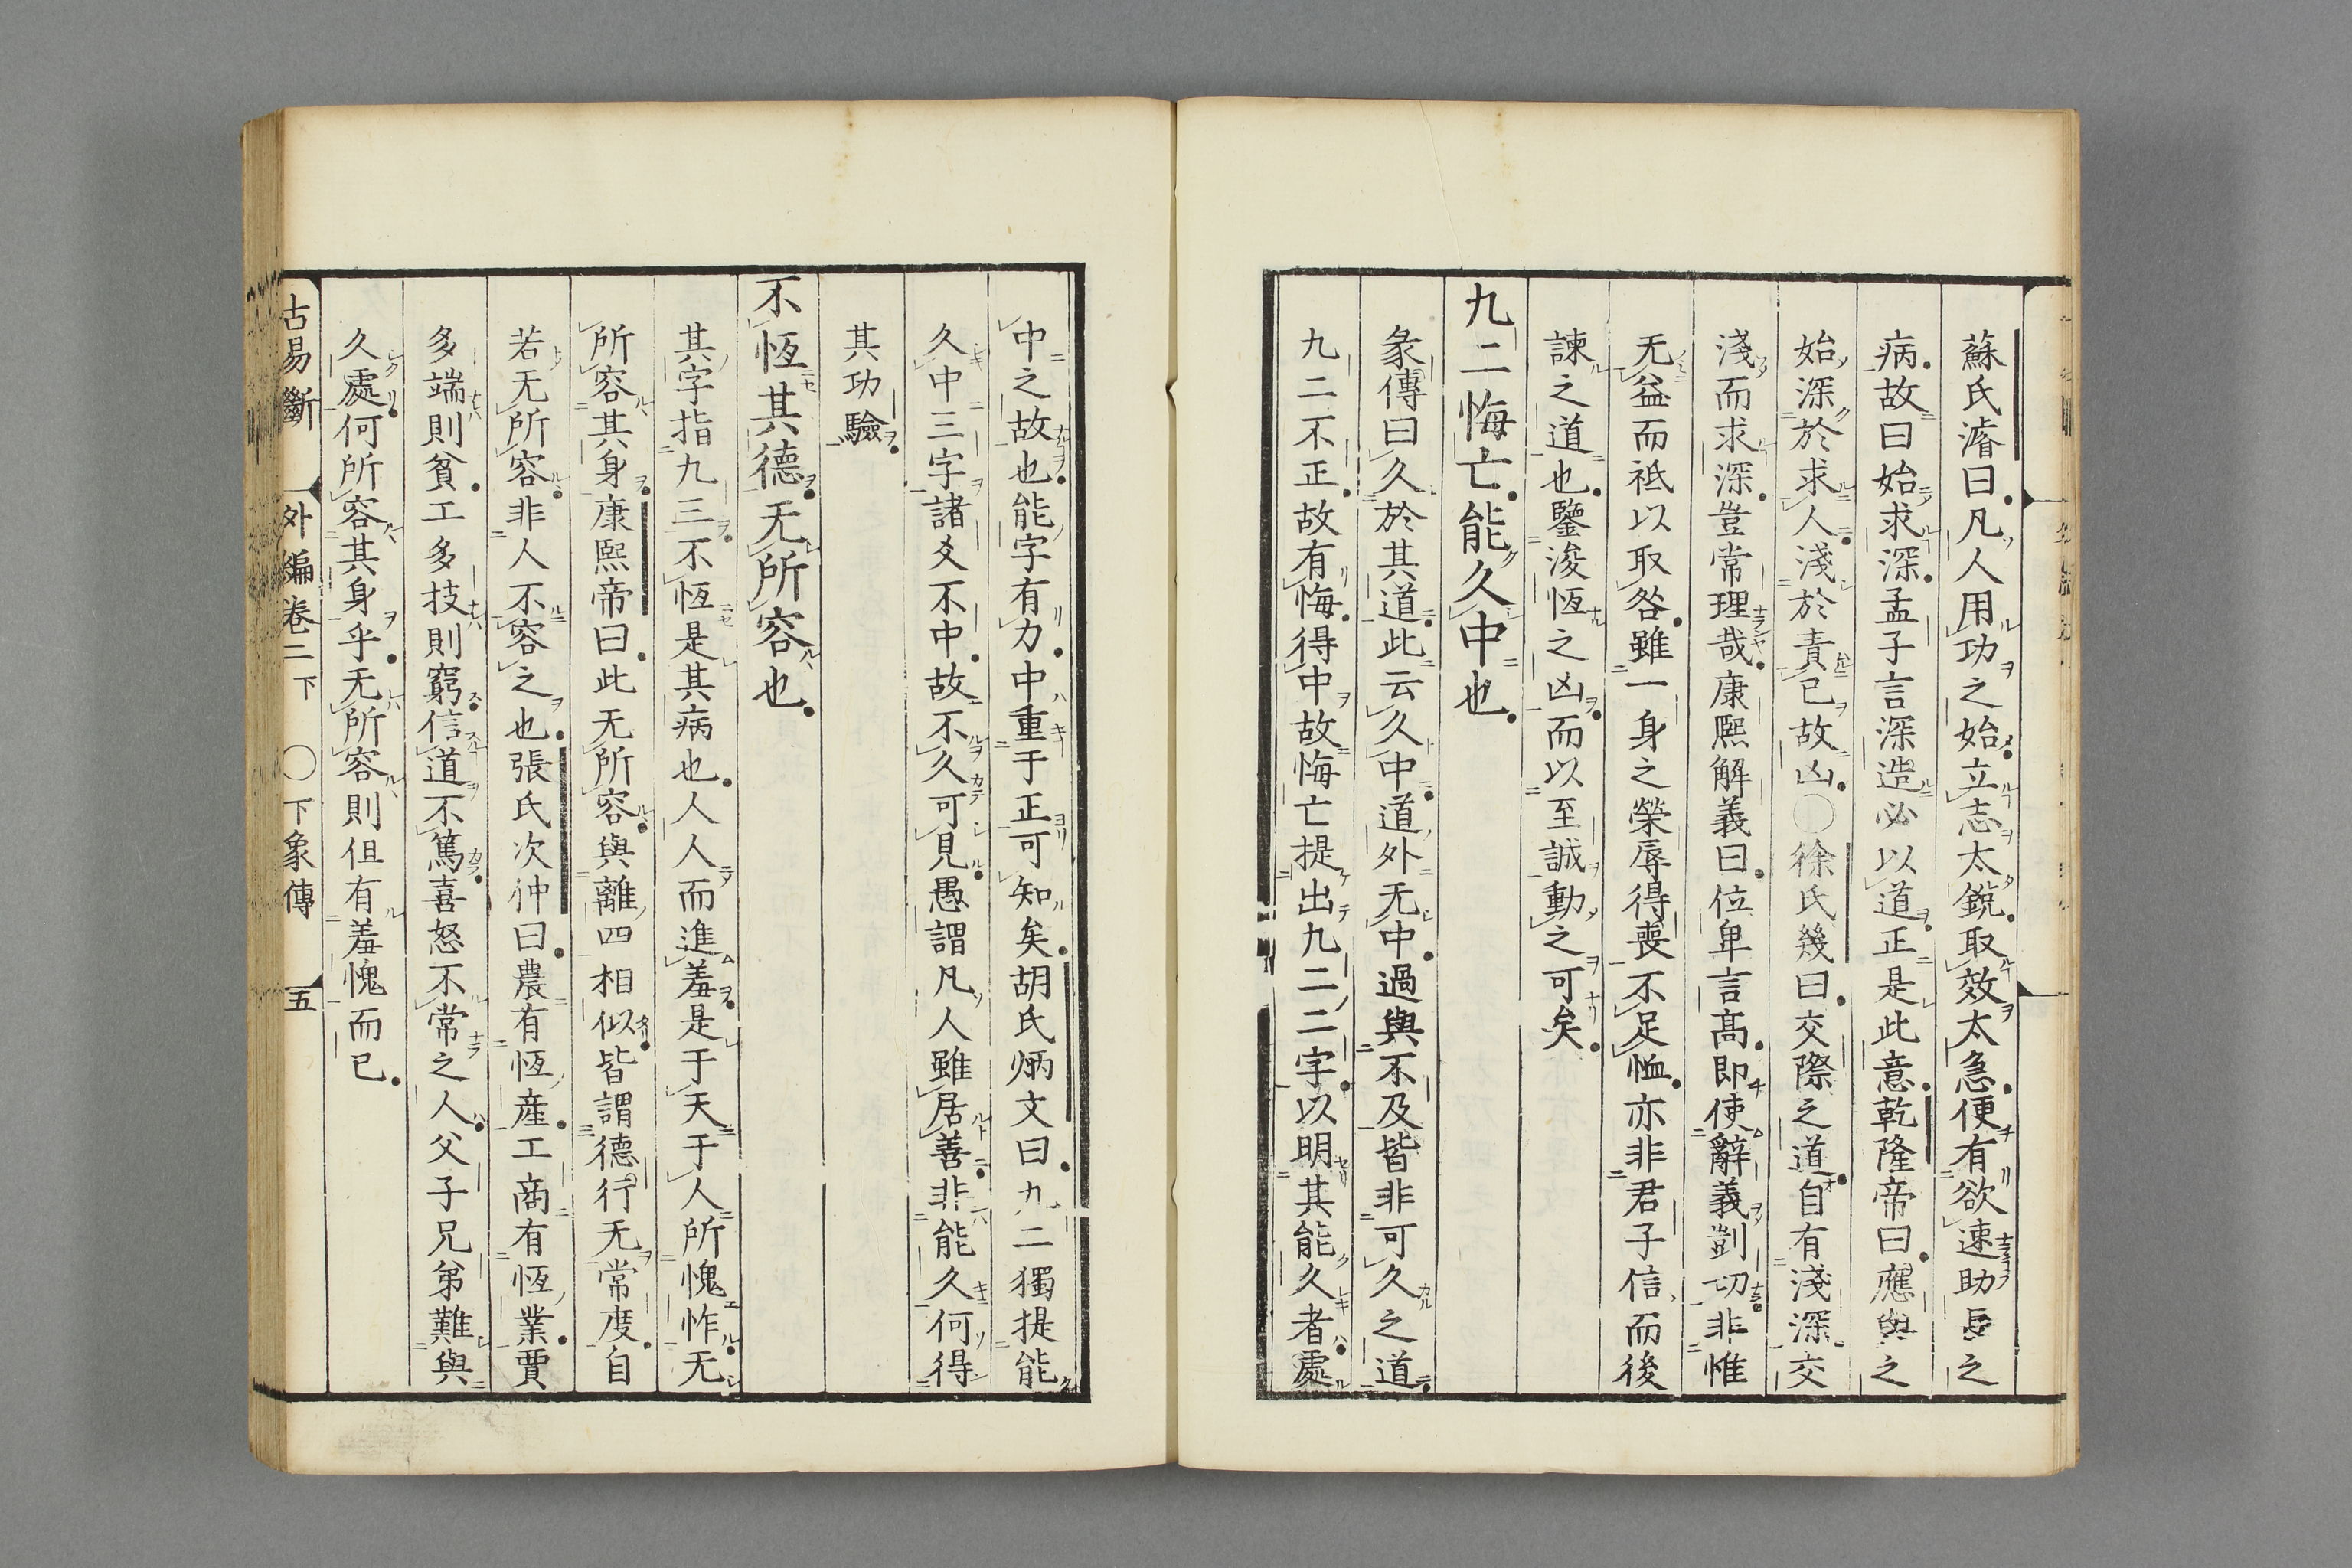 蘇氏濬曰凡人用功之始立志太銳取效太急便有欲速助長之
病故曰始求深孟子言深造必以道正是此意乾隆帝曰應與之
始深於求人淺於責已故凶○徐氏幾曰交際之道自有淺深交
淺而求深豈常理哉康熙解義曰位卑言高即使辭義剴切非惟
无益而祇以取咎雖一身之榮辱得喪不足恤亦非君子信而後
諫之道也鑒浚恆之凶而以至誠動之可矣
九二悔亡能久中也
彖傳曰久於其道此云久中道外无中過與不及皆非可久之道
九二不正故有悔得中故悔亡提出九二二字以明其能久者處
中之故也能字有力中重于正可知矣胡氏炳文曰九二獨提能
久中三字諸爻不中故不久可見愚謂凡人雖居善非能久何得
其功驗
不恆其德无所容也
其字指九三不恆是其病也人人而進羞是于天于人所愧怍无
所容其身康熙帝曰此无所容與離四相似皆謂德行无常度自
若无所容非人不容之也張氏次仲曰農有恆產工商有恆業賈
多端則貧工多技則窮信道不篤喜怒不常之人父子兄弟難與
久處何所容其身乎无所容則但有羞愧而已
古易斷 外編卷二下 ○下象傳 五